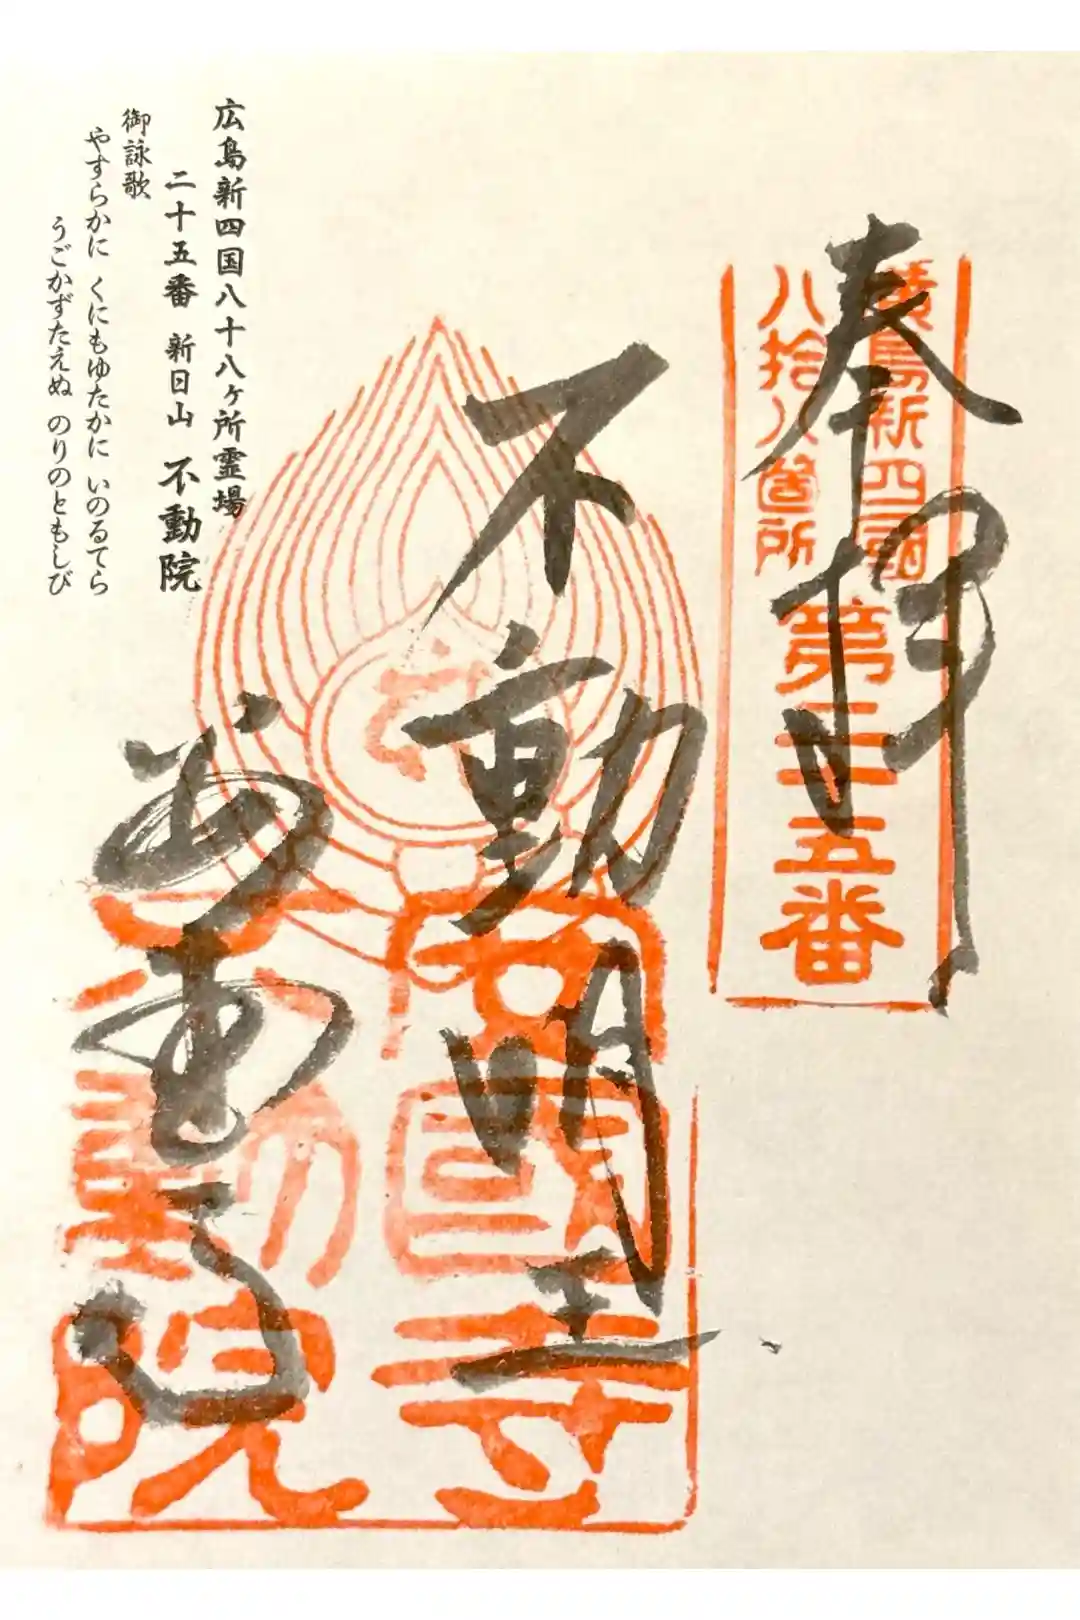 奉拝
廣島新四國
八拾八箇所
第二五番
不動明王
不動院
安國寺
不動院
広島新四国八十八ヶ所霊場
二十五番 新日山 不動院
御詠歌
やすらかに くにもゆたかに いのるてら
うごかずたえぬ のりのともしび